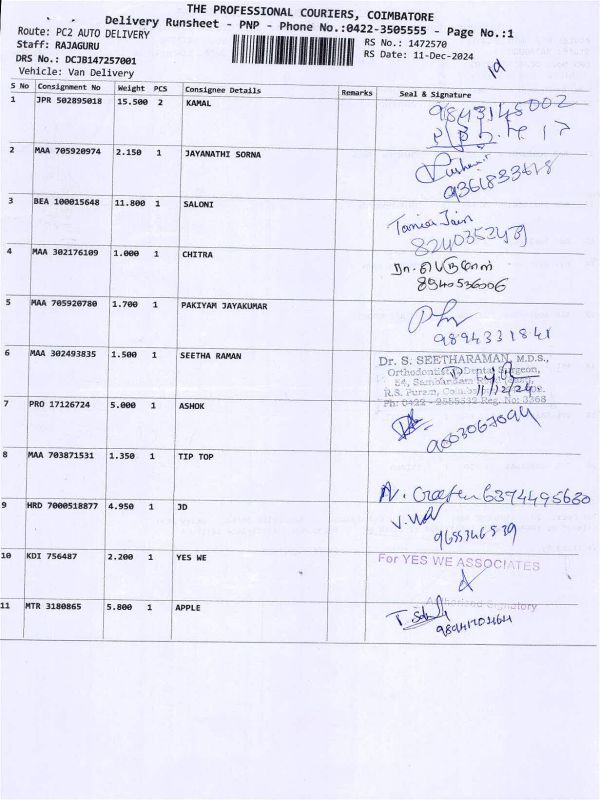 THE PROFESSIONAL COURIERS, COIMBATORE
Delivery Runsheet - PNP - Phone No.:0422-3505555 - Page No.:1
Route: PC2 AUTO DELIVERY
RS No.: 1472570
Staff: RAJAGURU
RS Date: 11-Dec-2024
DRS No.: DCJB147257001
Vehicle: Van Delivery
S No Consignment No Weight PCS Consignee Details Remarks Seal & Signature
1 JPR 502895018 15.500 2 KAMAL
9843145002
2 MAA 705920974 2.150 1 JAYANATHI SORNA
3 BEA 100015648 11.800 1 SALONI
Jain
4 MAA 302176109 1.000 1 CHITRA
8940536006
5 MAA 705920780 1.700 1 PAKIYAM JAYAKUMAR
9894331841
6 MAA 302493835 1.500 1 SEETHA RAMAN
Dr. S. SEETHARAMAN, M.D.S.,
Orthodontist & Dental Surgeon,
54, Sambandam
R.S. Puram,
11/12/24
Ph: 0422 - Reg. No: 3368
7 PRO 17126724 5.000 1 ASHOK
9003067094
8 MAA 703871531 1.350 1 TIP TOP
6374495680
9 HRD 7000518877 4.950 1 JD
9655346539
10 KDI 756487 2.200 1 YES WE
For YES WE ASSOCIATES
Authorised Signatory
11 MTR 3180865 5.800 1 APPLE